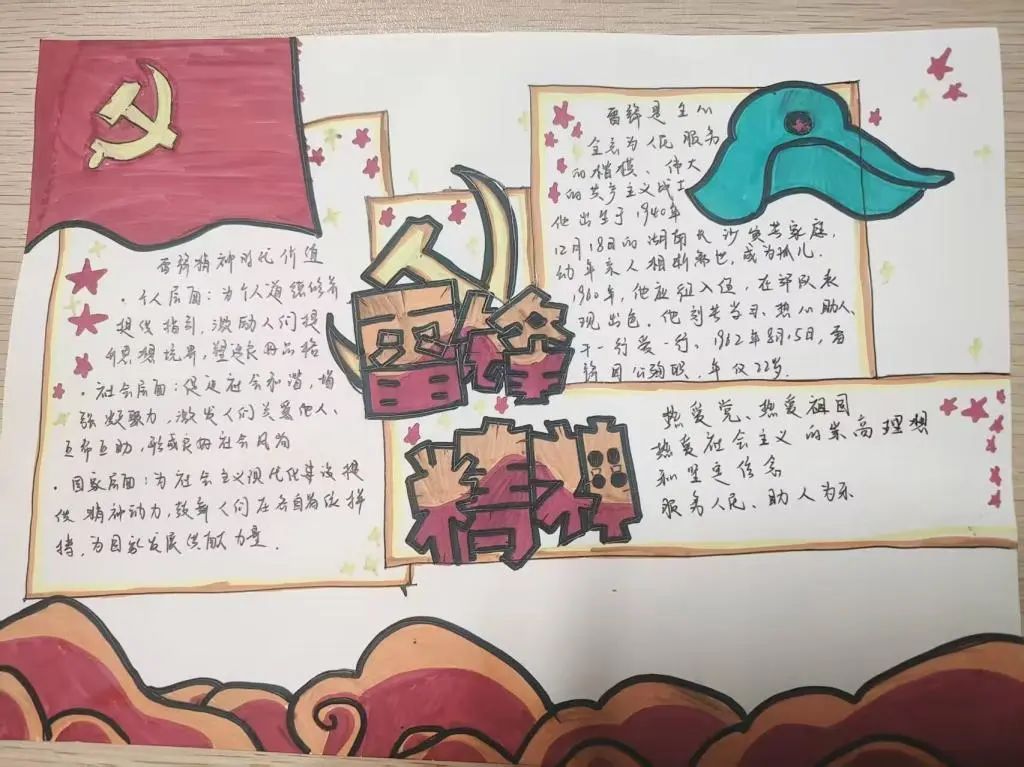 雷锋精神时代价值
·个人层面：为个人道德修养
提供指引，激励人们提
升思想境界，塑造良好品格
·社会层面：促进社会和谐，增
强凝聚力，激发人们关爱他人、
互帮互助，形成良好社会风尚
·国家层面：为社会主义现代化建设提
供精神动力，鼓舞人们在各自岗位拼
搏，为国家发展贡献力量.
雷锋
精神
雷锋是全心
全意为人民服务
的楷模、伟大
的共产主义战士
他出生于1940年
12月18日的湖南长沙贫苦家庭，
幼年亲人相断离世，成为孤儿.
1960年，他应征入伍，在部队表
现出色，他刻苦学习、热心助人、
干一行爱一行、1962年8月15日，雷
锋因公殉职，年仅22岁.
热爱党、热爱祖国
热爱社会主义的崇高理想
和坚定信念
服务人民、助人为乐